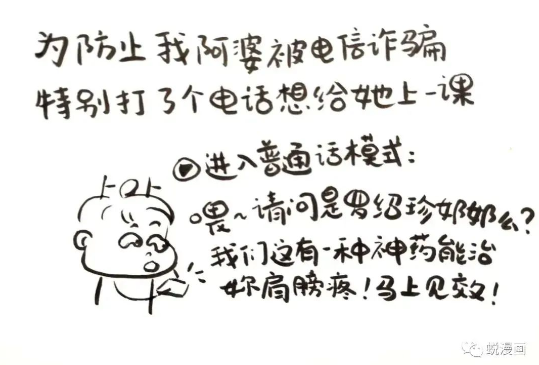 为防止我阿婆被电信诈骗
特别打了个电话想给她上一课
进入普通话模式:
喂~请问是罗绍珍奶奶么?
我们这有一种神药能治
妳肩膀疼!马上见效!
蜕漫画